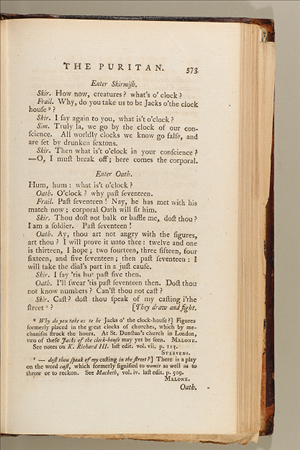 THE PURITAN. 573
Enter Skirmish.
Skir. How now, creatures? what's o'clock?
Frail. Why, do you take us to be Jacks o'the clock
house?
Skir. I say again to you, what is't o'clock?
Sim. Truly la, we go by the clock of our con-
science. All worldly clocks we know go false, and
are set by drunken sextons.
Skir. Then what is't o'clock in your conscience?
—O, I must break off; here comes the corporal.
Enter Oath.
Hum, hum: what is't o'clock?
Oath. O'clock? why past seventeen.
Frail. Past seventeen! Nay, he has met with his
match now; corporal Oath will fit him.
Skir. Thou dost not balk or baffle me, dost thou?
I am a soldier. Past seventeen!
Oath. Ay, thou art not angry with the figures,
art thou? I will prove it unto thee: twelve and one
is thirteen, I hope; two fourteen, three fifteen, four
sixteen, and five seventeen; then past seventeen: I
will take the dial's part in a just cause.
Skir. I say 'tis but past five then.
Oath. I'll swear 'tis past seventeen then. Dost thou
not know numbers? Can'st thou not cast?
Skir. Cast? dost thou speak of my casting i'the
street? [They draw and fight.
Why do you take us to be Jacks o' the clock-house?] Figures
formerly placed in the great clocks of churches, which by me-
chanism struck the hours. At St. Dunstan's church in London,
two of these Jacks of the clock-house may yet be seen. MALONE.
See notes on K. Richard III. last edit. vol. vii. p.
STEEVENS.
— dost thou speak of my casting in the street?] There is a play
on the word cast, which formerly signified to vomit as well as to
throw or to reckon. See Macbeth, vol. iv. last edit. p.
MALONE.
Oath.